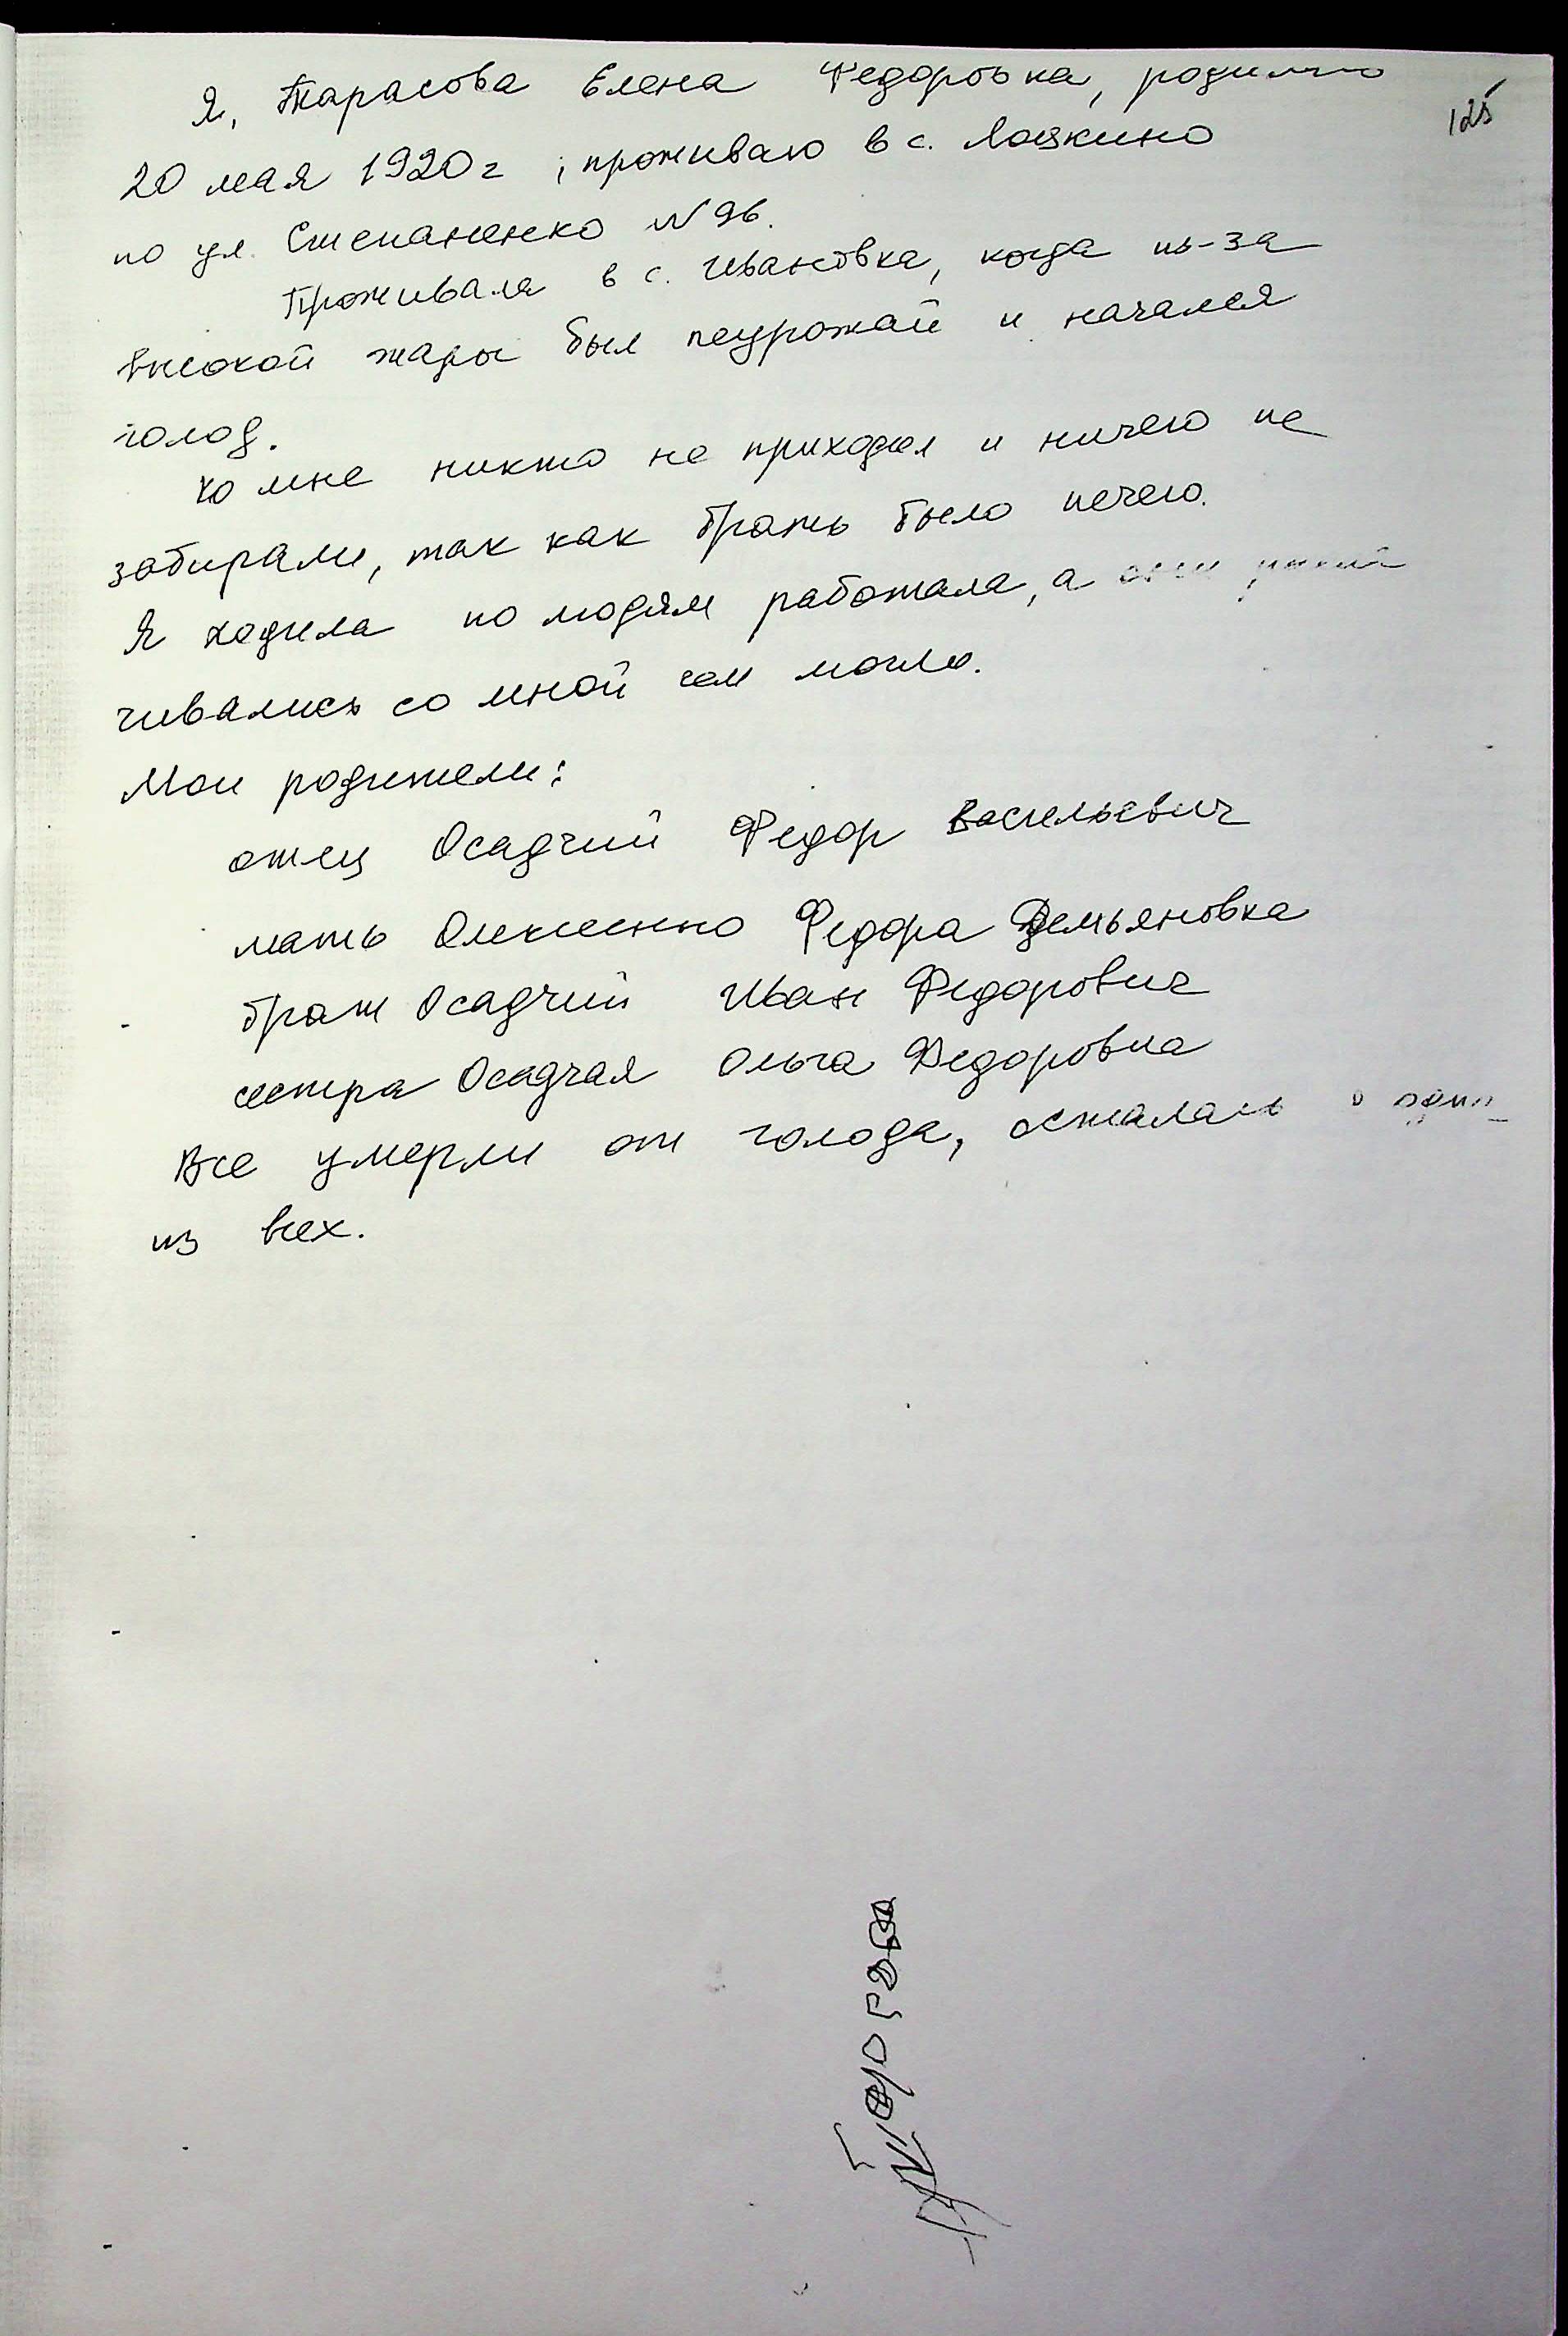 125
Я, Тарасова Елена Федоровна,
20 мая 1920 г, проживаю в с. Лоцкино
по ул. Степаненко №96.
Проживала в с. Ивановка, когда из-за
высокой жары был неурожай и начался
голод.
Ко мне никто не приходил и ничего не
забирали, так как брать было нечего.
Я ходила по людям работала, а
чивались со мной чем могли.
Мои родители:
отец Осадчий Федор Васильевич
мать Федора Демьяновка
брат Осадчий Иван Федорович
сестра Осадчая Ольга Федоровна
Все умерли от голода, осталась
из всех.